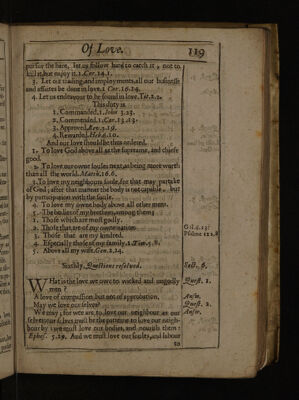 Of Love.
119
put for the hare, let us follow hard to catch it, not to
kill it, but enjoy it. 1. Cor. 14.1.
3. Let our trading, and imployments, all our businesse
and affaires be done in love. 1 Cor. 16.14.
4. Let us endeavour to be sound in love. Tit. 2.2.
This duty is
1. Commanded. 1. John 3.23.
2. Commended. 1. Cor. 13.13.
3. Approved. Rev. 2.19.
4. Rewarded. Heb. 6.10.
And our love should be thus ordered.
1. To love God above all as the supreame, and chiefe
good.
2. To love our owne soules next, as being more worth
than all the world. Matth. 16.6.
3. To love my neighbours soule, for that may partake
of God; after that manner the body is not capable, but
by participation with the soule.
4. To love my owne body above all other mens.
5. The bodies of my brethren, among them;
1. Those which are most godly.
2. Those that are of my owne nation.
3. Those that are my kindred.
4. Especially those of my family. 1 Tim. 5.8.
5. Above all my wife. Gen. 2.24.
Psalme 122.8
Sixthly, Questions resolved.
Sect. 6.
What is the love we owe to wicked and ungodly
men?
Quest. 1.
A love of compassion, but not of approbation.
Answ.
May we love our selves?
Quest. 2.
We may; for wee are to love our neighbour as our
Answ.
selves; our selves must be the patterne to love our neighbour
by: we must love our bodies, and nourish them:
Ephes. 5.29. And we must love our soules, and labour
to